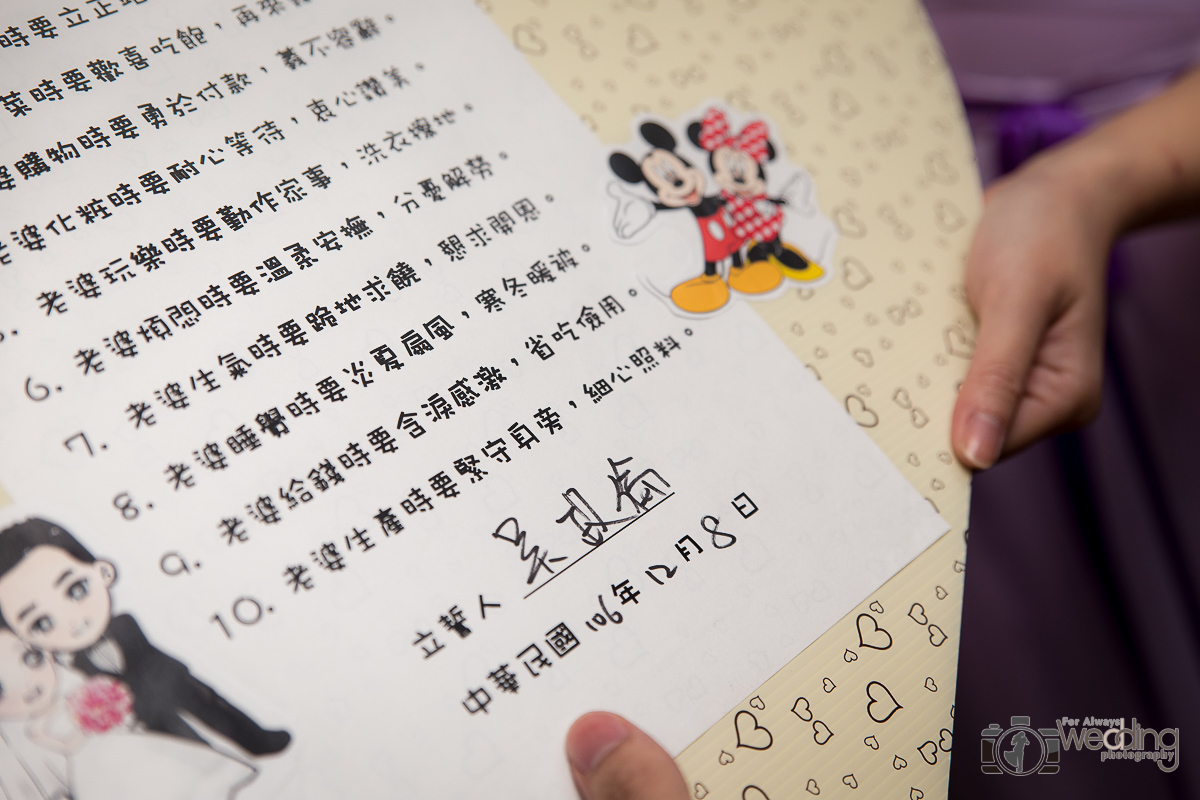 時要立正站
菜時要歡喜吃飽，再來
婆購物時要勇於付款，義不容辭。
老婆化粧時要耐心等待，衷心讚美。
老婆玩樂時要勤作家事，洗衣擦地。
6. 老婆煩悶時要溫柔安撫，分憂解勞。
7. 老婆生氣時要跪地求饒，懇求開恩。
8. 老婆睡覺時要炎夏扇風，寒冬暖被。
9. 老婆給錢時要含淚感激，省吃儉用。
10. 老婆生產時要緊守身旁，細心照料。
立誓人 吳
中華民國 106年12月8日
For Always
Wedding
photography